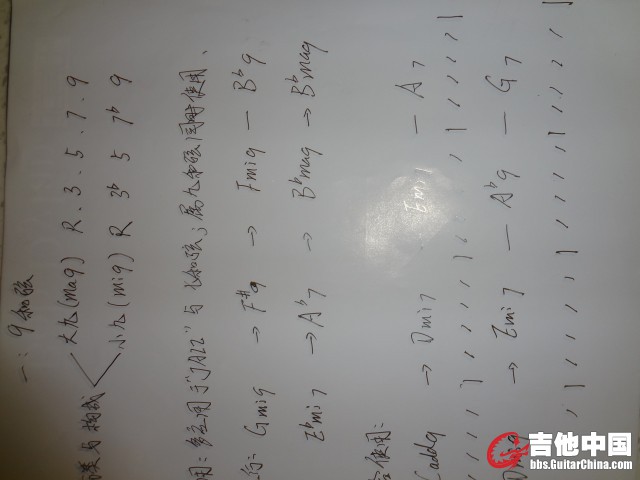 一：9和弦
大九(ma9) R . 3 . 5 . 7 . 9
类与构成
小九(mi9) R 3b 5 7b 9
用：多应用于"JAZZ"与七和弦；属九和弦同时使用、
行：Gmi9 → F#9 → Fmi9 — Bb9
Ebmi7 → Ab7 → Bbma9 → Bbma9
使用：
Cadd9 → Dmi7 — Emi7 — A7
→ Emi7 — Ab9 — G7
吉他中国
bbs.GuitarChina.com